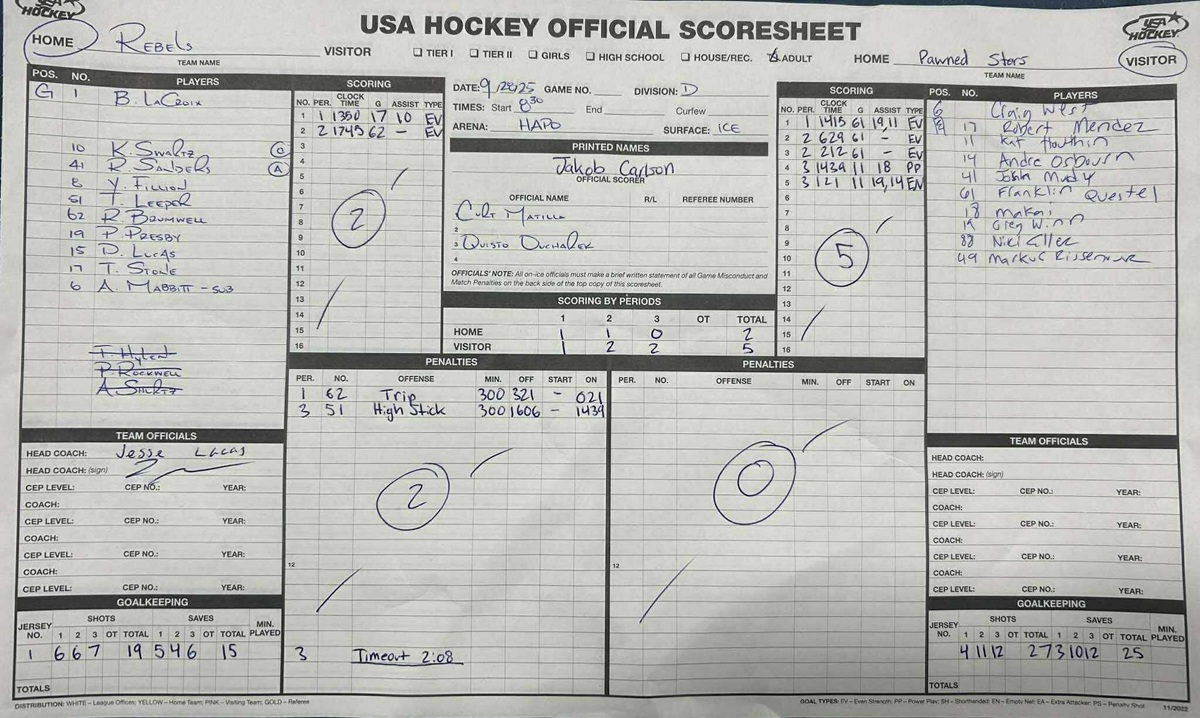 USA HOCKEY
USA HOCKEY OFFICIAL SCORESHEET
USA HOCKEY
HOME Rebels VISITOR
TEAM NAME
TIER I TIER II GIRLS HIGH SCHOOL HOUSE/REC. ADULT
HOME Pawned Stars VISITOR
TEAM NAME
POS. NO. PLAYERS
G 1 B. LaCroix
10 K. Swartz C
41 R. Sanders A
8 Y. Fillion
51 T. Leeper
62 R. Brumwell
19 P. Presby
15 D. Lucas
17 T. Stone
6 A. Mabbitt - SUB
T. Hylent
P. Rockwell
SCORING
NO. PER. CLOCK TIME G ASSIST TYPE
1 1 1350 17 10 EV
2 2 1745 62 - EV
3
4
5
6
7
8
9
10
11
12
13
14
15
16
2
DATE: 9/28/25 GAME NO. DIVISION: D
TIMES: Start 8:30 End Curfew
ARENA: HAPO SURFACE: ICE
PRINTED NAMES
Jakob Carlson
OFFICIAL SCORER
OFFICIAL NAME R/L REFEREE NUMBER
Curt Matilla
2
3 Quisto
4
OFFICIALS' NOTE: All on-ice officials must make a brief written statement of all Game Misconduct and
Match Penalties on the back side of the top copy of this scoresheet.
SCORING BY PERIODS
1 2 3 OT TOTAL
HOME 1 1 0 2
VISITOR 1 2 2 5
SCORING
NO. PER. CLOCK TIME G ASSIST TYPE
1 1 1415 61 19,11 EV
2 2 629 61 - EV
3 2 212 61 - EV
4 3 1439 11 18 PP
5 3 121 11 19,14 EN
6
7
8
9
10
11
12
13
14
15
16
5
POS. NO. PLAYERS
G Craig West
17 Robert Mendez
11 Kat
14 Andre Osbourn
41 John Mudy
61 Franklin Questel
18 Makai
19 Greg Winn
88 Niki
49 Markus
PENALTIES
PER. NO. OFFENSE MIN. OFF START ON
1 62 Trip 300 321 - 021
3 51 High Stick 300 1606 - 1439
2
12
3 Timeout 2:08
PENALTIES
PER. NO. OFFENSE MIN. OFF START ON
0
12
TEAM OFFICIALS
HEAD COACH: Jesse Lucas
HEAD COACH: (sign)
CEP LEVEL: CEP NO.: YEAR:
COACH:
CEP LEVEL: CEP NO.: YEAR:
COACH:
CEP LEVEL: CEP NO.: YEAR:
COACH:
CEP LEVEL: CEP NO.: YEAR:
GOALKEEPING
JERSEY NO. SHOTS SAVES MIN. PLAYED
1 2 3 OT TOTAL 1 2 3 OT TOTAL
1 6 6 7 19 5 4 6 15
TOTALS
TEAM OFFICIALS
HEAD COACH:
HEAD COACH: (sign)
CEP LEVEL: CEP NO.: YEAR:
COACH:
CEP LEVEL: CEP NO.: YEAR:
COACH:
CEP LEVEL: CEP NO.: YEAR:
COACH:
CEP LEVEL: CEP NO.: YEAR:
GOALKEEPING
JERSEY NO. SHOTS SAVES MIN. PLAYED
1 2 3 OT TOTAL 1 2 3 OT TOTAL
4 11 12 27 3 10 12 25
TOTALS
DISTRIBUTION: WHITE – League Offices; YELLOW – Home Team; PINK – Visiting Team; GOLD – Referee
GOAL TYPES: EV – Even Strength; PP – Power Play; SH – Shorthanded; EN – Empty Net; EA – Extra Attacker; PS – Penalty Shot 11/2022